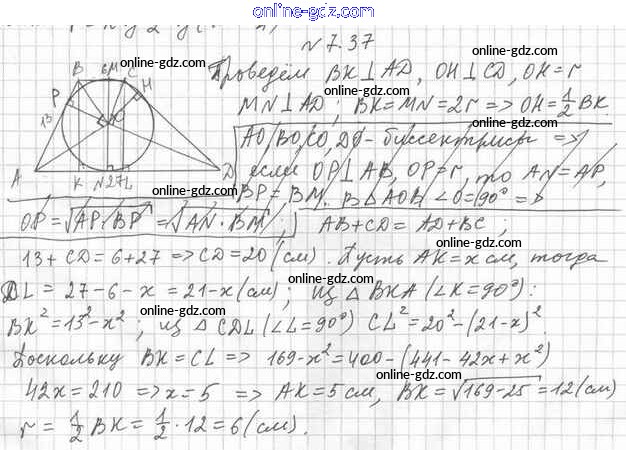 GDZ-ONLINE
online-gdz.com
N 7.37
online-gdz.com
Проведём BK⊥AD, OH⊥CD, OH=r
MN⊥AD; BK=MN=2r => OH=1/2 BK.
B 6M C H
P O
13
A K N 27 L D
AO, BO, CO, DO - биссектрисы =>
если OP⊥AB, OP=r, то AN=AP,
BP=BM. В △AOB ∠O=90° =>
OP=√AP·BP=√AN·BM; AB+CD=AD+BC;
13+CD=6+27 => CD=20(см). Пусть AK=x см, тогда
DL=27-6-x=21-x(см); из △BKA (∠K=90°):
BK²=13²-x²; из △CDL (∠L=90°) CL²=20²-(21-x)².
Поскольку BK=CL => 169-x²=400-(441-42x+x²)
42x=210 => x=5 => AK=5см, BK=√169-25=12(см)
r=1/2 BK=1/2·12=6(см).
online-gdz.com
online-gdz.com
online-gdz.com
online-gdz.com
online-gdz.com
online-gdz.com
online-gdz.com
online-gdz.com
online-gdz.com
online-gdz.com
online-gdz.com